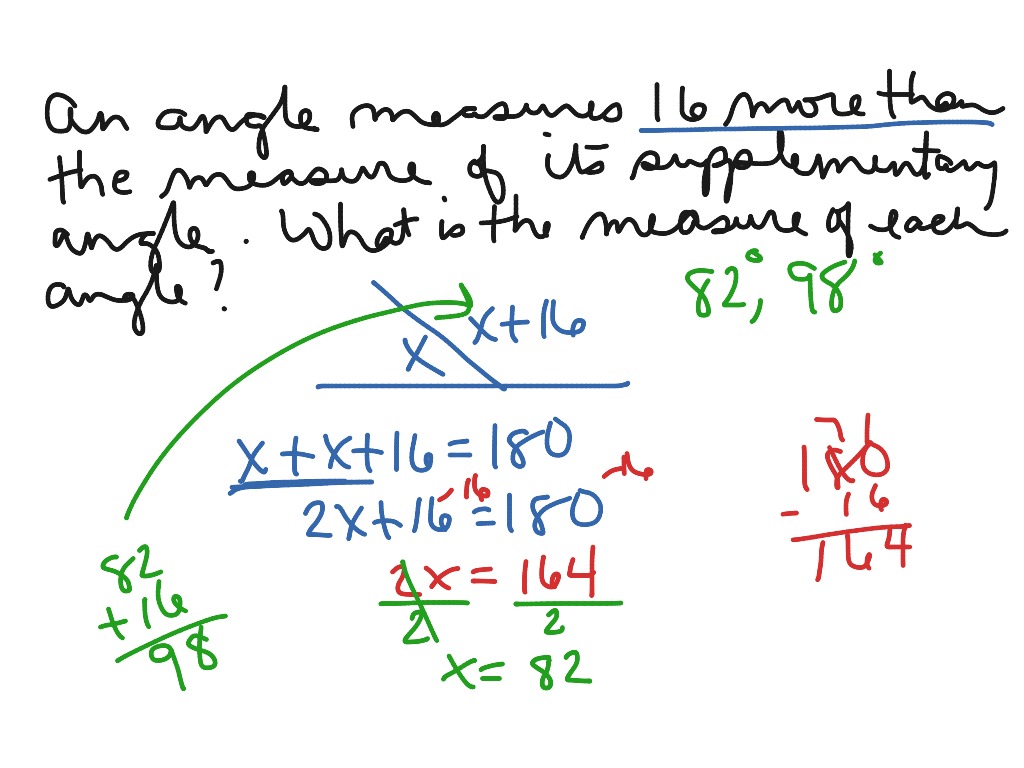 An angle measures 16 more than
the measure of its supplementary
angle. What is the measure of each
angle?
82°, 98°
x+16
x
x + x + 16 = 180
2x + 16 = 180
-16 -16
2x = 164
2 2
x = 82
82
+16
98
7 1
180
- 16
164